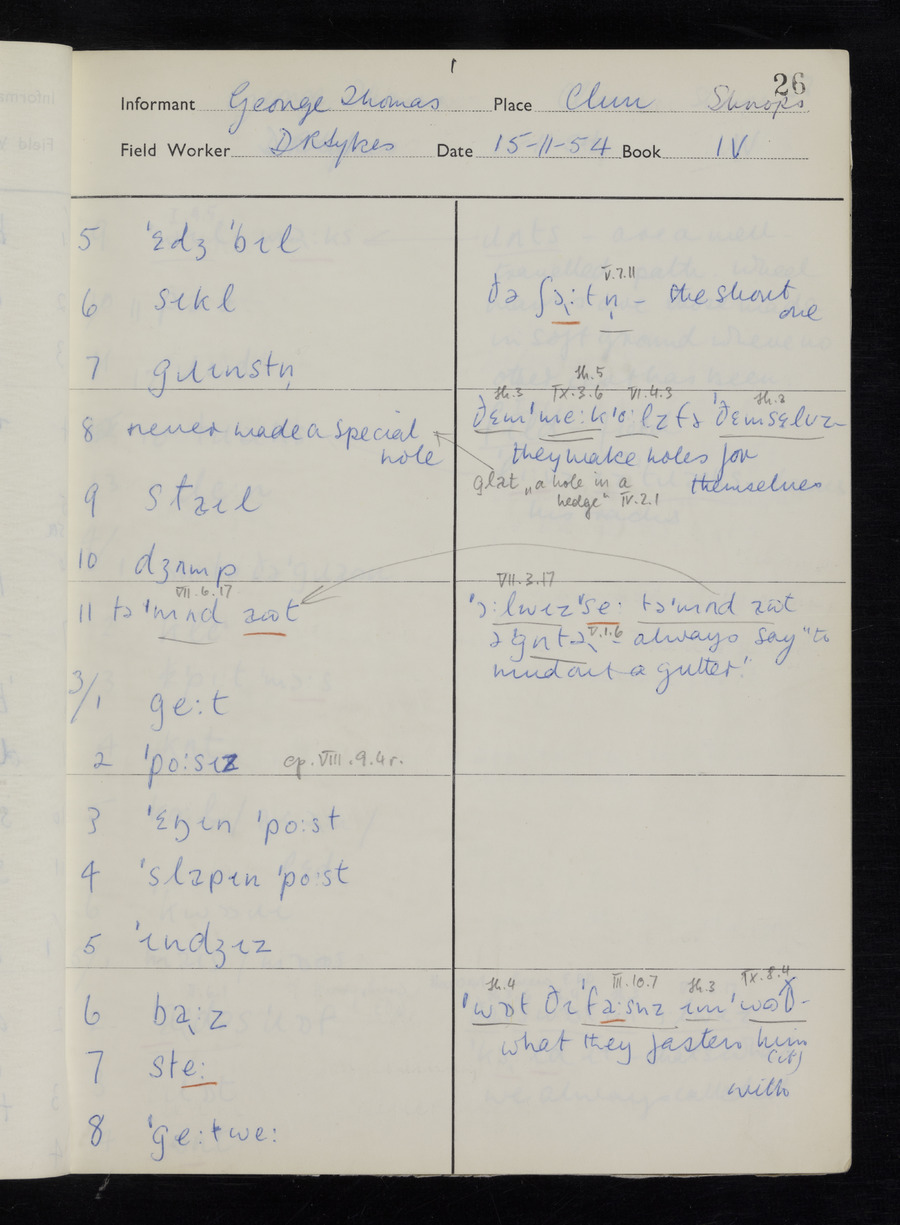 26
Informant George Thomas Place Clun Shrops
Field Worker D R Sykes Date 15-11-54 Book IV
5 ˈɛdʒ ˈbɪl
6 sɪkl
7 gɹɪnstn̩
8 never made a special
hole
9 staɪl
10 dʒʌmp
VII.6.17
11 tə ˈmʌd aʊt
3/1 ge:t
2 ˈpo:sɪz cp. VIII.9.4r.
3 ˈɛŋɪn ˈpo:st
4 ˈslapɪn ˈpo:st
5 ˈɪndʒɪz
6 ba̢:z
7 ste:
8 ˈge:twe:
V.7.11
ðə ʃɔ̢:t n̩ – the short
one
th.5
th.3 IX.3.6 VI.4.3 th.2
ðɛmˈme:k ˈo:lz fə ˈðɛmsɛlvz
they make holes for
themselves
glat „a hole in a
hedge" IV.2.1
VII.3.17
ˈɔ:lwɪz ˈse: təˈmʌd aʊt
əˈgʌtə̢ V.1.6 – always say "to
mud out a gutter".
th.4 III.10.7 th.3 IX.8.4
ˈwɒt ðɪ ˈfa:snz ɪm ˈwɪð –
what they fasten him
(it)
with